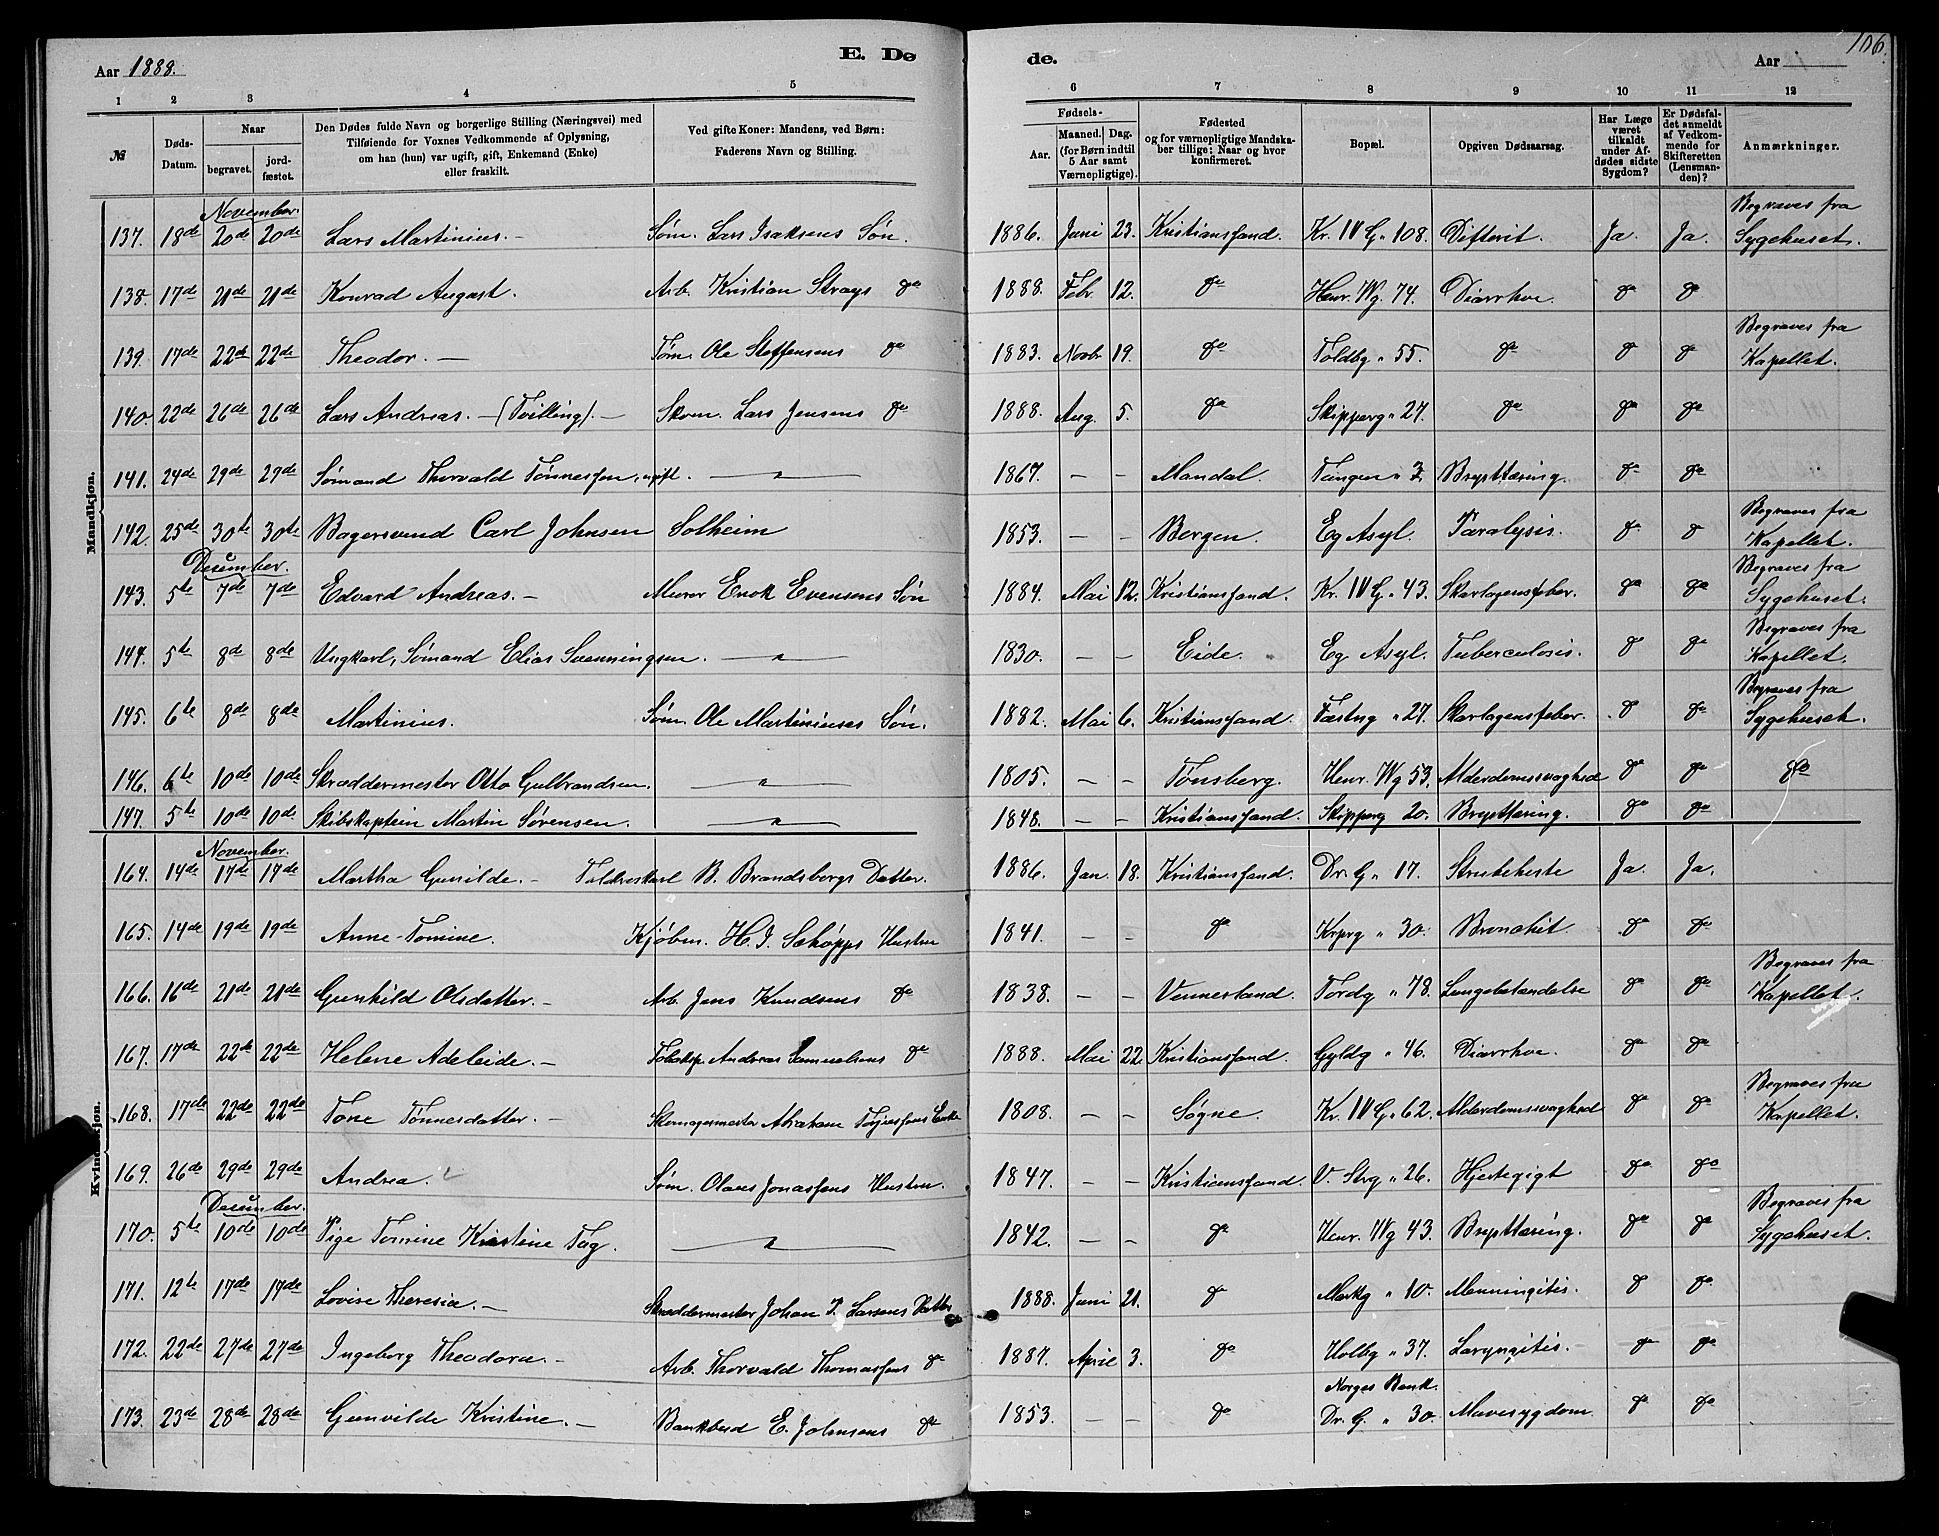 Aar 1888. E. Dø
de. Aar 106.
1 2 3 4 5
6 7 8 9 10 11 12
№ Døds-Datum. Naar begravet. jord-fæstet. Den Dødes fulde Navn og borgerlige Stilling (Næringsvei) med Tilføiende for Voxnes Vedkommende af Oplysning, om han (hun) var ugift, gift, Enkemand (Enke) eller fraskilt. Ved gifte Koner: Mandens, ved Børn: Faderens Navn og Stilling.
Fødsels- Aar. Maaned. Dag. (for Børn indtil 5 Aar samt Værnepligtige). Fødested og for værnepligtige Mandska-ber tillige: Naar og hvor konfirmeret. Bopæl. Opgiven Dødsaarsag. Har Læge været tilkaldt under Af-dødes sidste Sygdom? Er Dødsfal-det anmeldt af Vedkom-mende for Skifteretten (Lensman-den)? Anmærkninger.
Mandkjøn.
November.
137. 18de 20de 20de Lars Martinius. — Søm. Lars Isaksens Søn. 1886. Juni 23. Kristianssand. Kr. IV G. 108. Difterit. Ja. Ja. Begraves fra Sygehuset.
138. 17de 21de 21de Konrad August. Arb. Kristian Strays do 1888. Febr. 12. do Henr. Wg. 74. Diarrhoe. do do
139. 17de 22de 22de Theodor. — Tøm. Ole Steffensens do 1883. Novbr 19. do Toldbg " 55. do do do Begraves fra Kapellet.
140. 22de 26de 26de Lars Andreas. — (Tvilling). — Skom. Lars Jensens do 1888. Aug. 5. do Skipperg " 27. do do do
141. 24de 29de 29de Sømand Thorvald Tønnessen, ugift. — " — 1867. — — Mandal. Tangen " 3 Brysttæring. do do
142. 25de 30te 30te Bagersvend Carl Johnsen Solheim 1853. — — Bergen. Eg Asyl. Paralysis. do do Begraves fra Kapellet.
December.
143. 5te 7de 7de Edvard Andreas. — Murer Enok Evensens Søn 1884. Mai 12. Kristianssand. Kr. IV G. " 43. Skarlagensfeber. do do Begraves fra Sygehuset.
144. 5te 8de 8de Ungkarl, Sømand Elias Svenningsen. — " — 1830. — — Eide. Eg Asyl. Tuberculosis. do do Begraves fra Kapellet.
145. 6te 8de 8de Martinius. Søm. Ole Martiniuses Søn. 1882. Mai 6. Kristianssand. Fæstng " 27. Skarlagensfeber. do do Begraves fra Sygehuset.
146. 6te 10de 10de Skræddermester Otto Gulbrandsen. — " — 1805. — — Tønsberg. Henr. Wg 53. Alderdomssvaghed do do do
147. 5te 10de 10de Skibskaptein Martin Sørensen. — " — 1848. — — Kristianssand. Skipperg 20. Brysttæring. do do
Kvindekjøn.
November.
164. 14de 17de 17de Martha Gunilde. — B. Brandsbergs Datter. 1886. Jan. 18. Kristianssand. Dr. G. " 17. Strubehoste Ja. Ja.
165. 14de 19de 19de Anne Tomine. Kjøbm. H. J. Schøpps Hustru 1841. — — do Krprg " 30. Bronchit. do do
166. 16de 21de 21de Gunhild Olsdatter. — Arb. Jens Knudsens do 1838. — — Vennesland. Tordg " 78. Lungebetændelse do do Begraves fra Kapellet.
167. 17de 22de 22de Helene Adeleide. — Andreas Samuelsens do 1888. Mai 22. Kristianssand. Gyldg " 46. Diarrhoe. do do
168. 17de 22de 22de Tone Tønnesdatter. — Skomagermester Abraham Terjesens Enke 1808. — — Søgne. Kr. IV G. " 62. Alderdomssvaghed do do Begraves fra Kapellet.
169. 26de 29de 29de Andrea. Søm. Olaves Jonassens Hustru. 1847. — — Kristianssand. V. Strg " 26. Hjertegigt do do
December.
170. 5te 10de 10de Pige Tomine Kirstine Fag. — " — 1842. — — do Henr. Wg 43. Brysttæring. do do Begraves fra Sygehuset.
171. 12te 17de 17de Lovise Theresia. — Skræddermester Johan P. Larsens Datter 1888. Juni 21. do Markg " 10. Menningitis. do do
172. 22de 27de 27de Ingeborg Theodora. — Arb. Thorvald Thomassens do 1887. April 3. do Holbg " 37. Laryngitis. — do do
173. 23de 28de 28de Gunvilde Kristine. — Bankbud E. Johnsens do 1853. — — do Norges Bank. Dr. G. " 30. Mavesygdom. do do